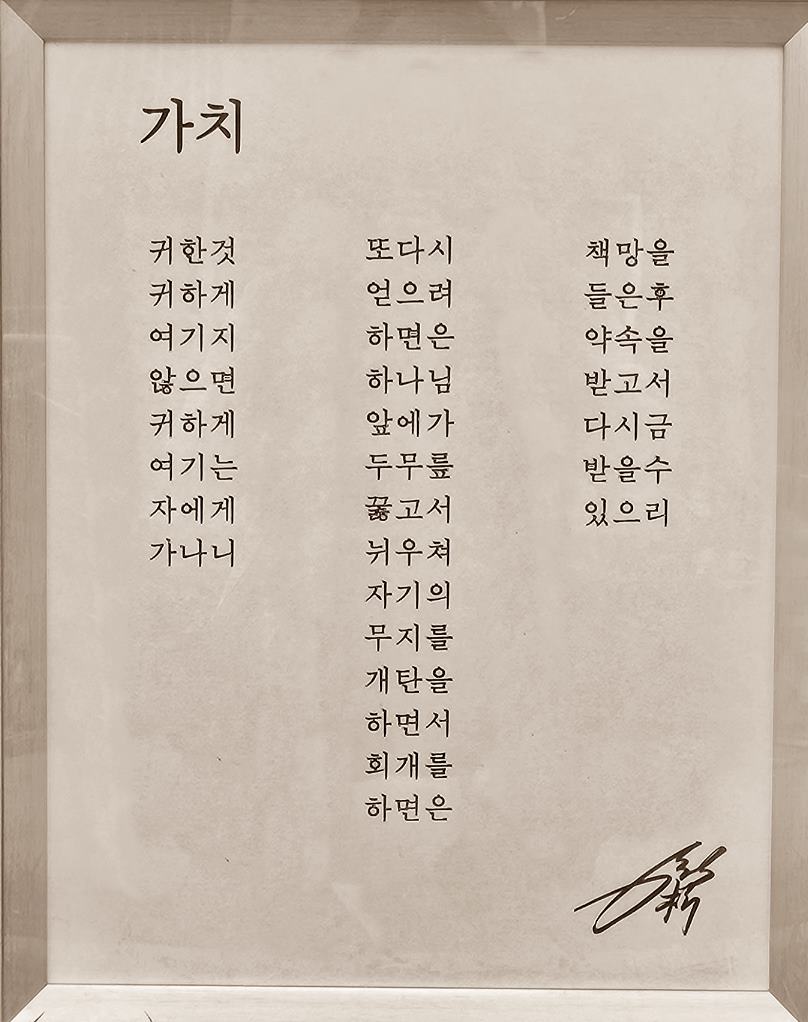 가치
귀한것
귀하게
여기지
않으면
귀하게
여기는
자에게
가나니
또다시
얻으려
하면은
하나님
앞에가
두무릎
꿇고서
뉘우쳐
자기의
무지를
개탄을
하면서
회개를
하면은
책망을
들은후
약속을
받고서
다시금
받을수
있으리